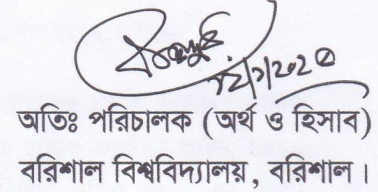 অতিঃ পরিচালক (অর্থ ও হিসাব)
বরিশাল বিশ্ববিদ্যালয়, বরিশাল।